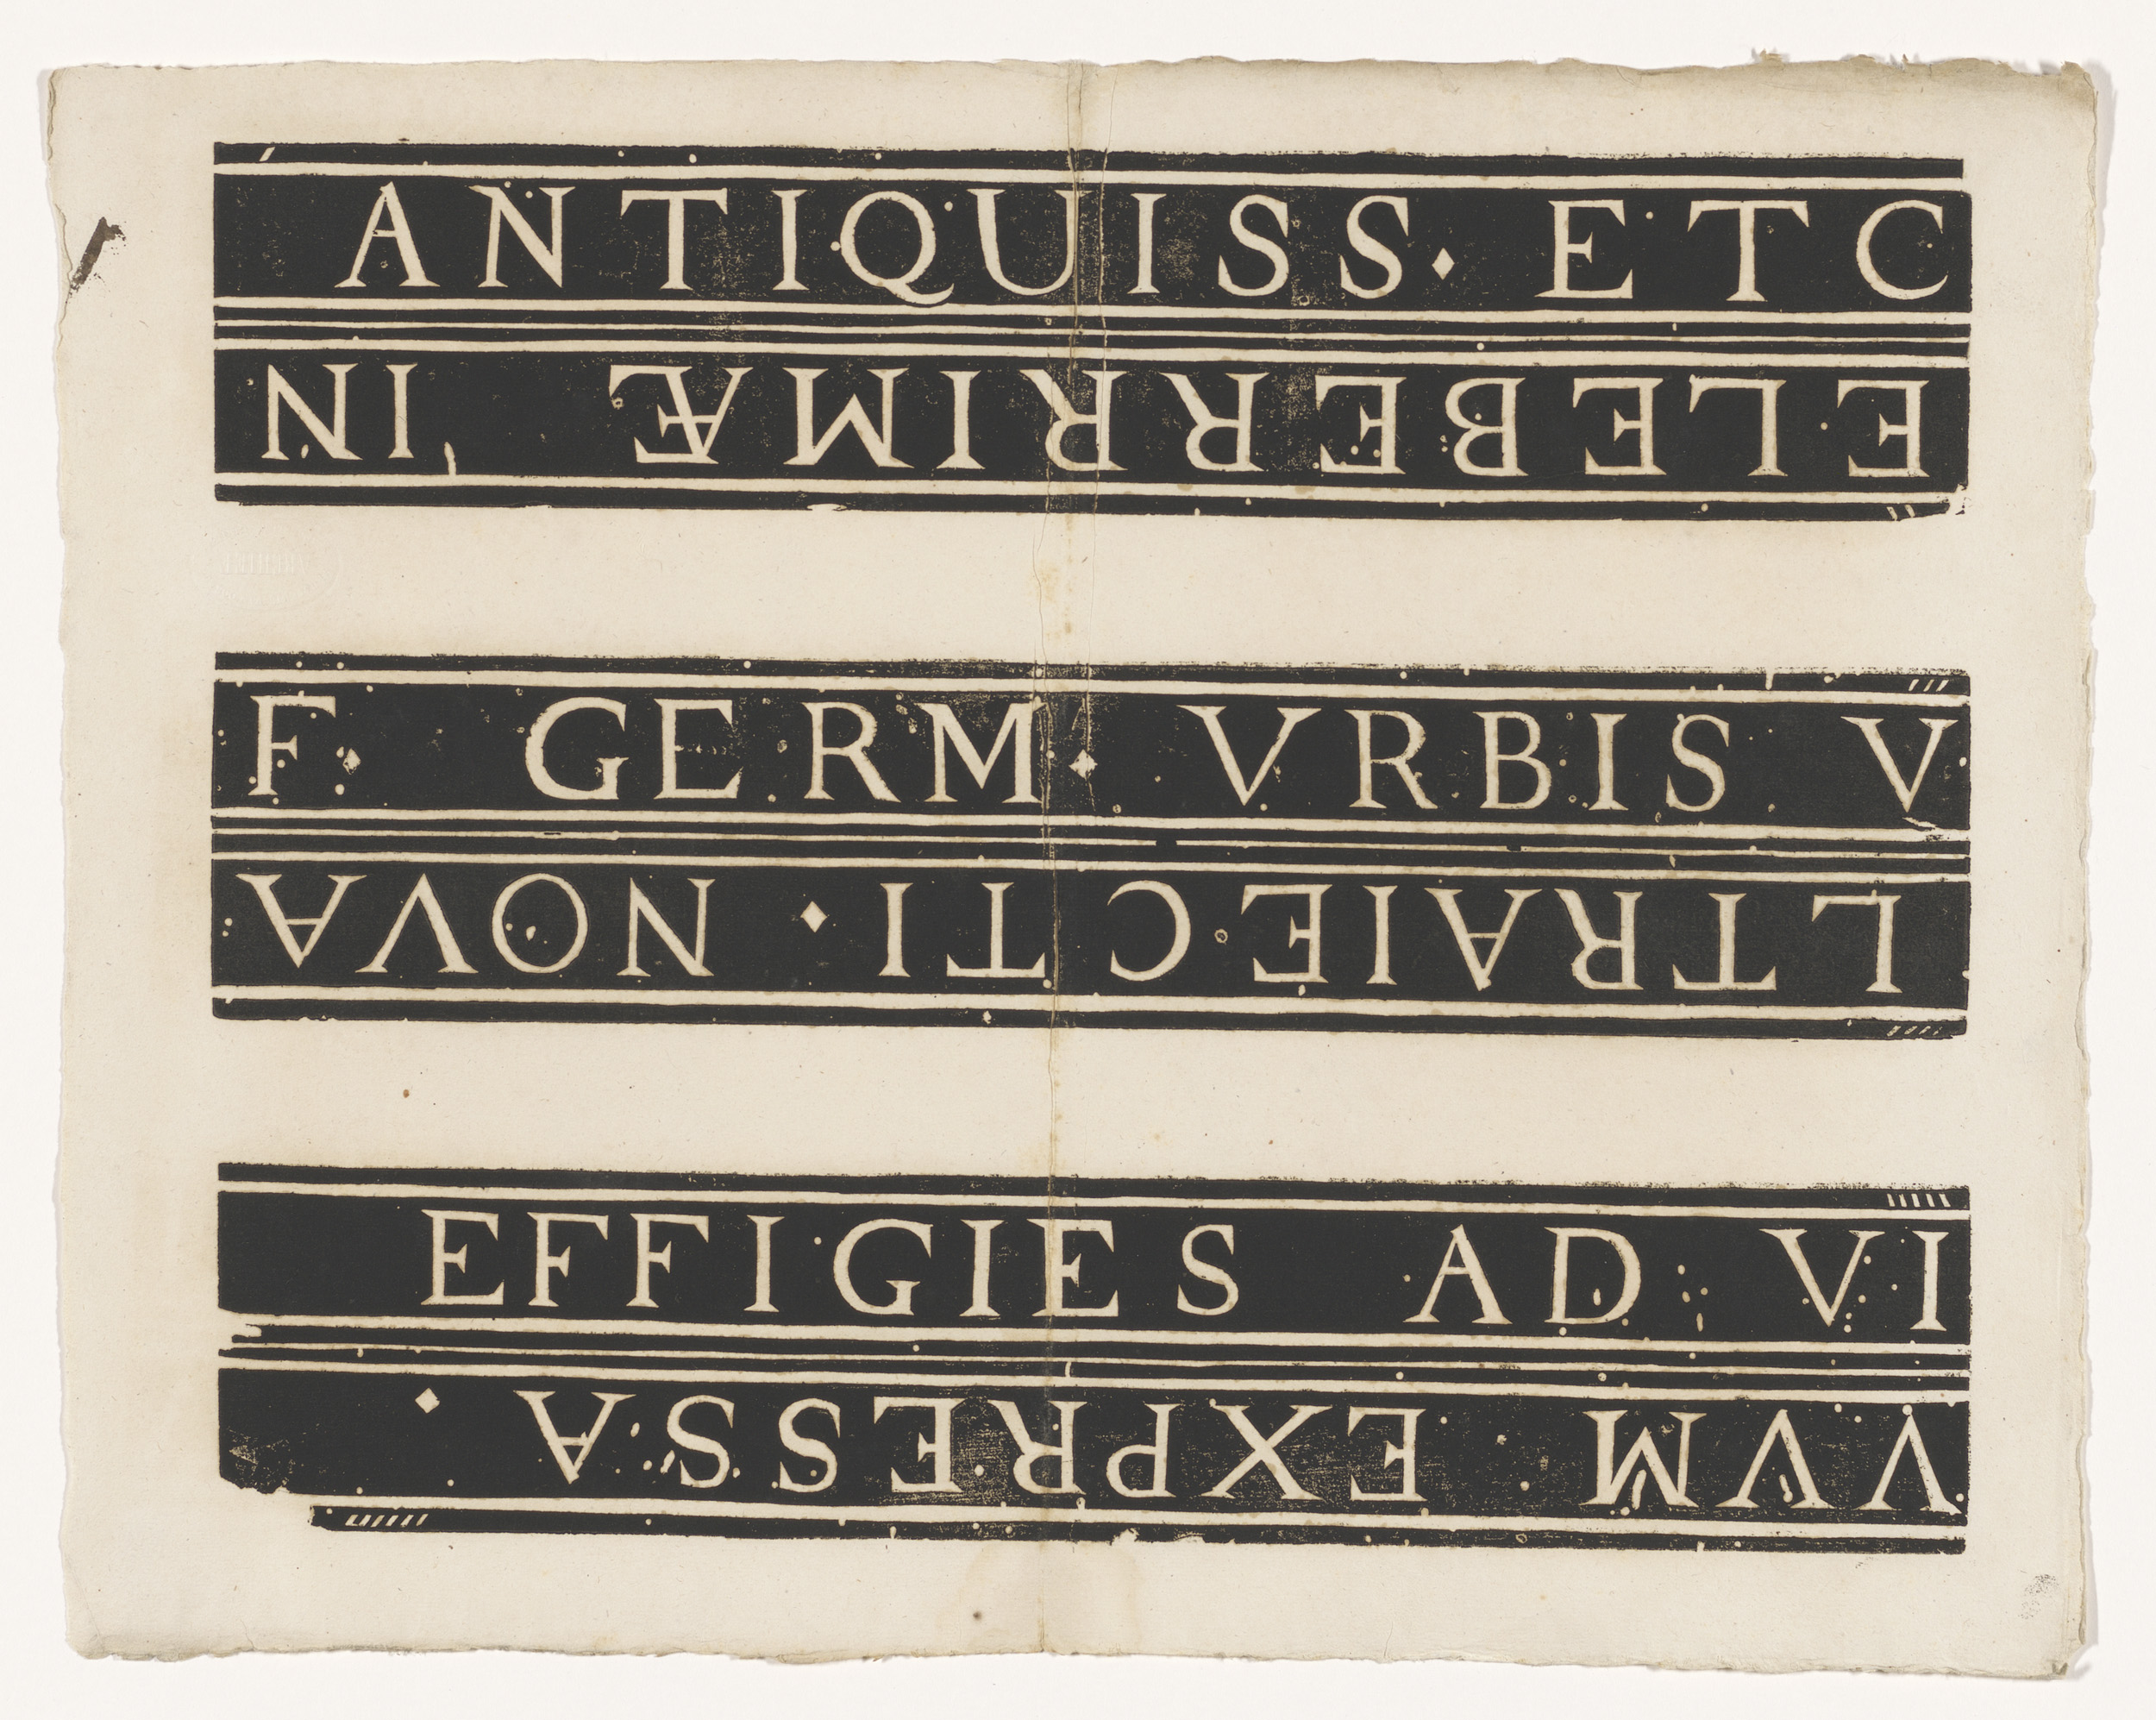 ANTIQUISS· ET C
ELEBERRIMÆ IN
F· GERM· VRBIS V
LTRAIECTI · NOVA
EFFIGIES AD VI
VVM EXPRESSA ·